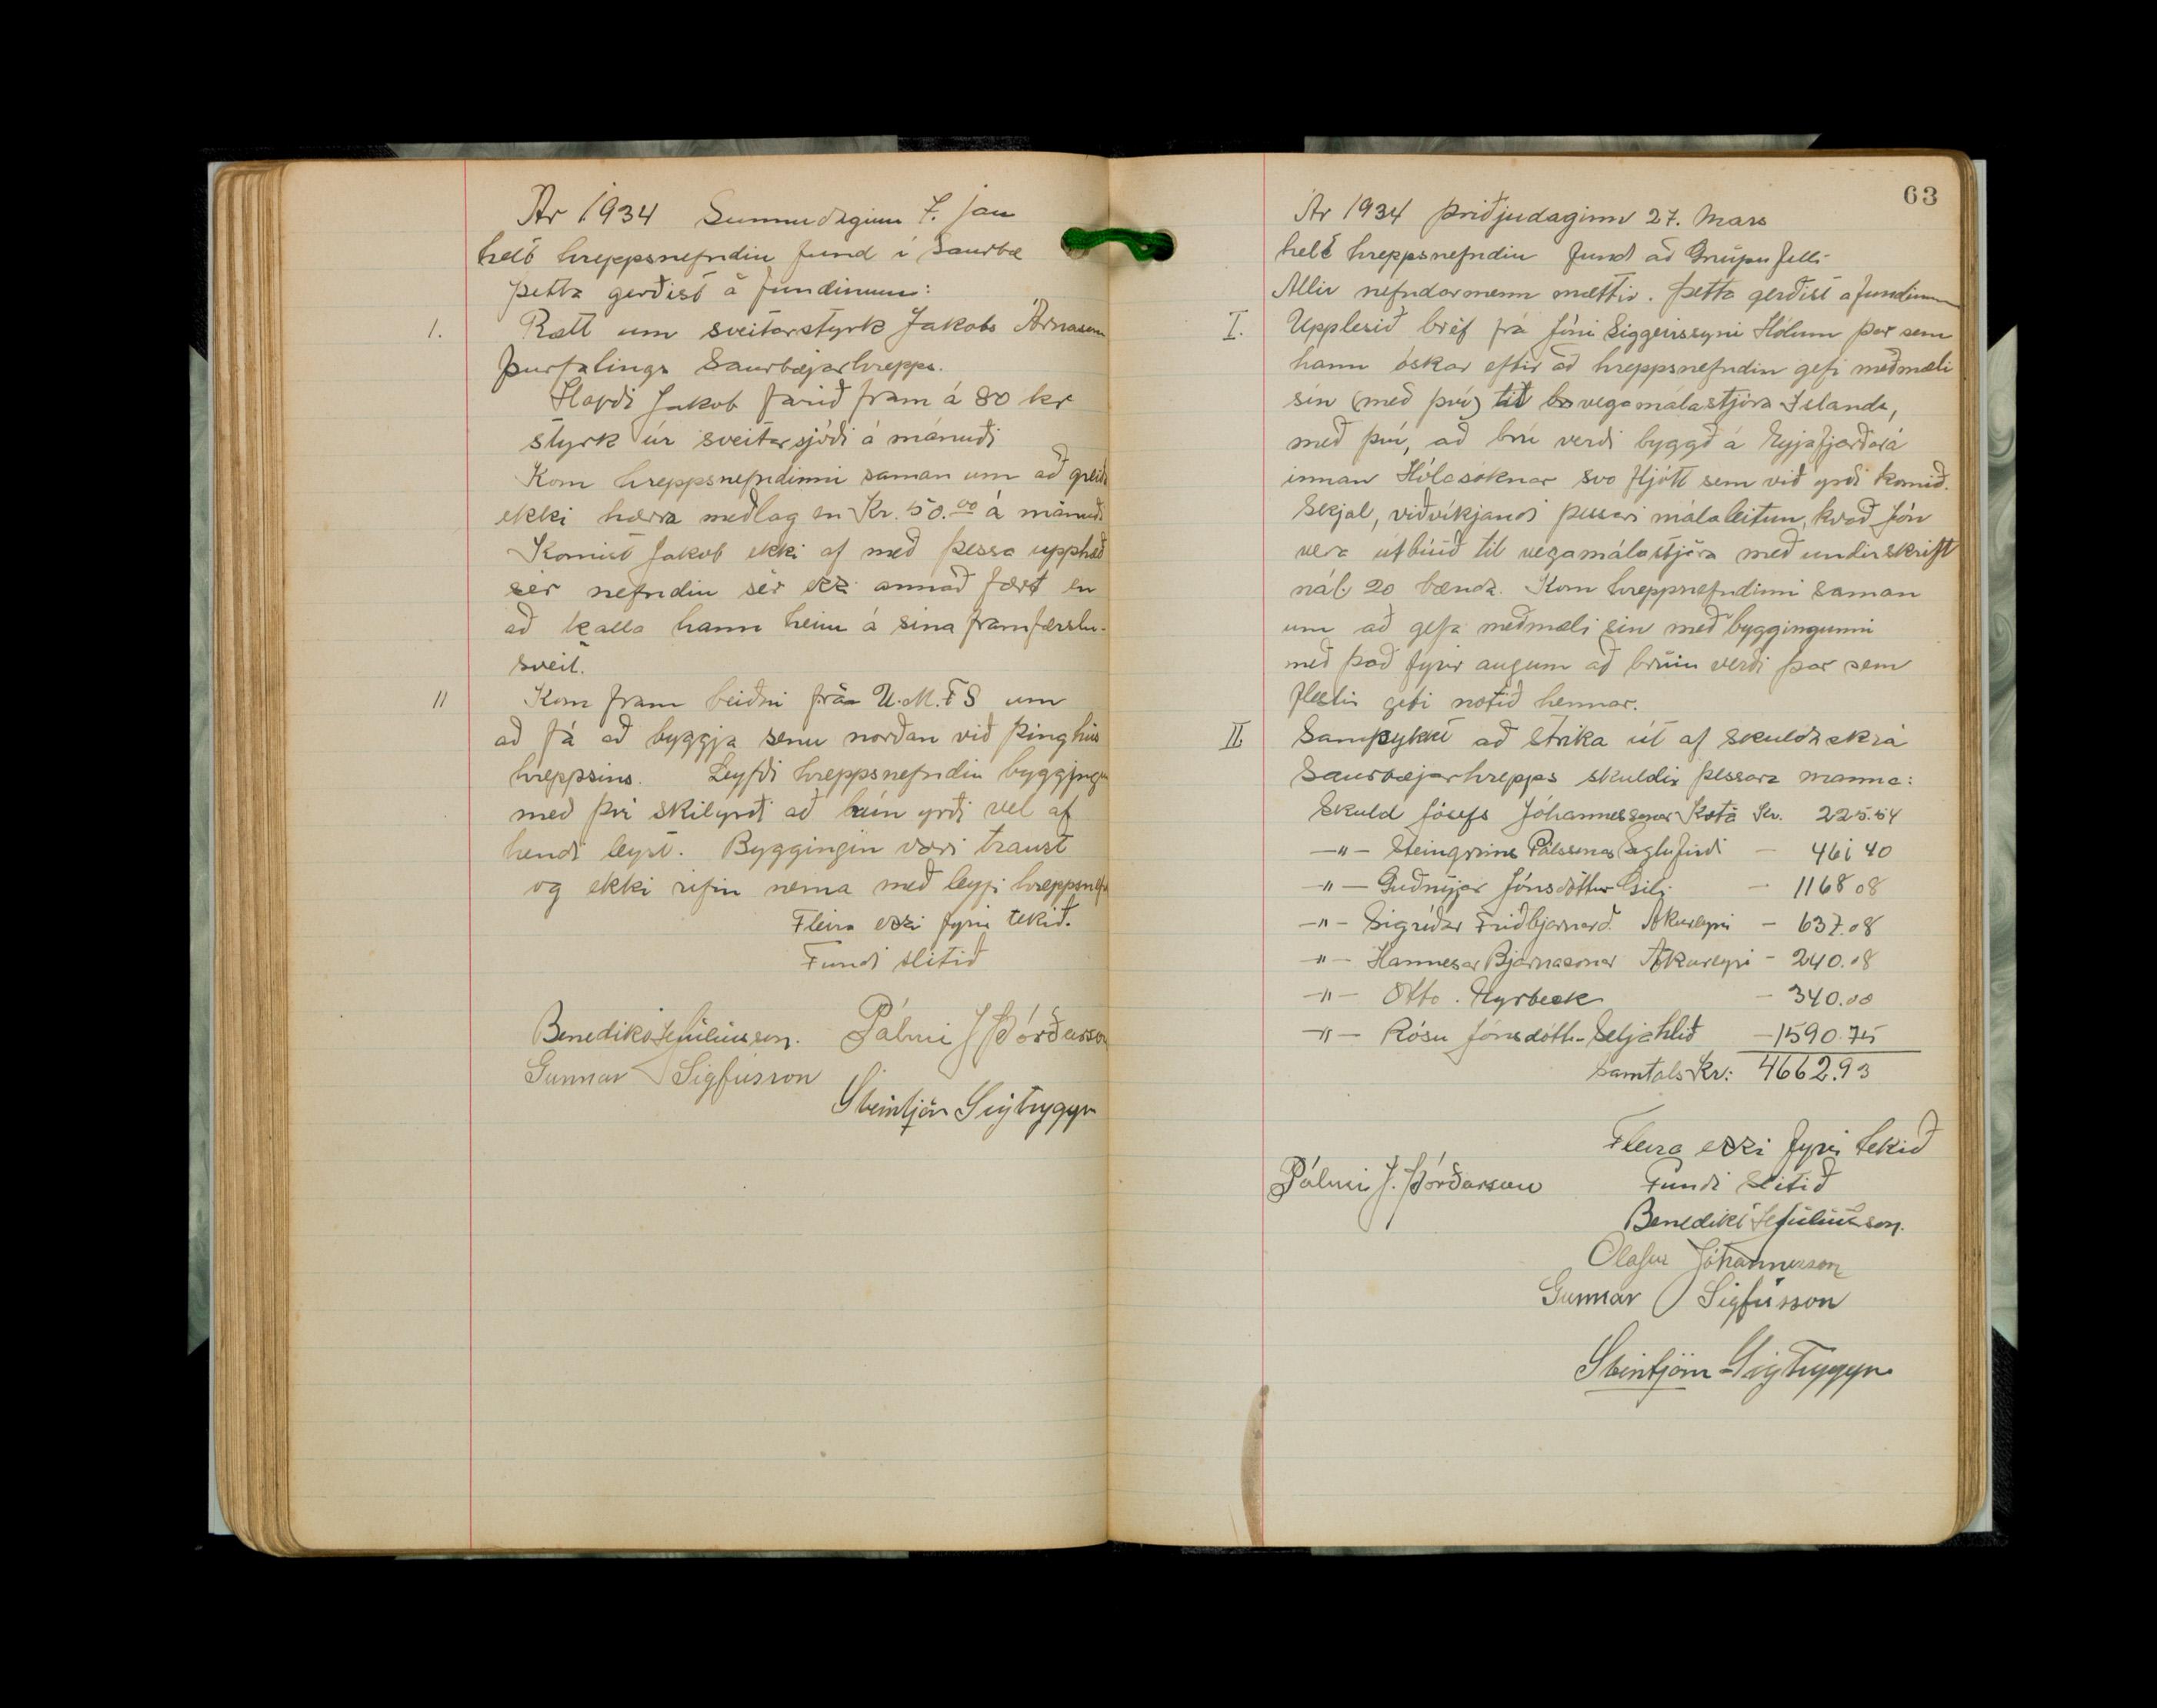 Ár 1934 Sunnudaginn 7. jan
hélt hreppsnefndin fund í Saurbæ
þetta gerðist á fundinum:
1. Rætt um sveitarstyrk Jakobs Árnasonar
þurfalings Saurbæjarhrepps.
Hafði Jakob farið fram á 80 kr
styrk úr sveitarsjóði á mánuði
Kom hreppsnefndinni saman um að greiða
ekki hærra meðlag en Kr. 50.00 á mánuði
Komist Jakob ekki af með þessa upphæð
sér nefndin sér ekki annað fært en
að kalla hann heim á sína framfærslu-
sveit.
11 Kom fram beiðni frá U.M.F S um
að fá að byggja senu norðan við þinghús
hreppsins. Leyfði hreppsnefndin bygginguna
með því skilyrði að hún yrði vel af
hendi leyst. Byggingin væri traust
og ekki rifin nema með leyfi hreppsnef
Fleira ekki fyrir tekið.
Fundi slitið
Benedikt Júlíusson. Pálmi J Þórðarson
Gunnar Sigfússon
Steinþjór Sigtryggs
63
Ár 1934 þriðjudaginn 27. Mars
helt hreppsnefndin fund að Gnúpufelli
Allir nefndarmenn mættir. Þetta gerðist á fundinum
I. Upplesið bréf frá Jóni Siggeirssyni Hólum þar sem
hann óskar eftir að hreppsnefndin gefi meðmæli
sín (með því) til vegamálastjóra Íslands,
með því, að brú verði byggð á Eyjafjarðará
innan Hólasóknar svo fljótt sem við yrði komið.
Skjal, viðvíkjandi þessari málaleitun, kvað Jón
vera útbúið til vegamálastjóra með undirskrift
nál. 20 bænda. Kom hreppnefndinni saman
um að gefa meðmæli sín með byggingunni
með það fyrir augum að brúin verði þar sem
flestir geti notið hennar.
II. Samþykkt að strika út af skuldaskrá
Saurbæjarhrepps skuldir þessara manna:
Skuld Jósefs Jóhannessonar Kotá Kr. 225.54
—"— Steingríms Pálssonar Siglufirði — 461 40
—"— Guðnýjar Jónsdóttur Gili — 1168 08
—"— Sigríðar Friðbjarnard. Akureyri — 637.08
—"— Hannesar Bjarnasonar Akureyri — 240.08
—"— Otto. Tyrbeck — 340.00
—"— Rósu Jónsdóttr Seljahlíð — 1590.75
Samtals Kr: 4662.93
Fleira ekki fyrir tekið
Pálmi J. Þórðarson Fundi slitið
Benedikt Júlíusson.
Ólafur Jóhannesson
Gunnar Sigfússon
Steinþjór Sigtryggs